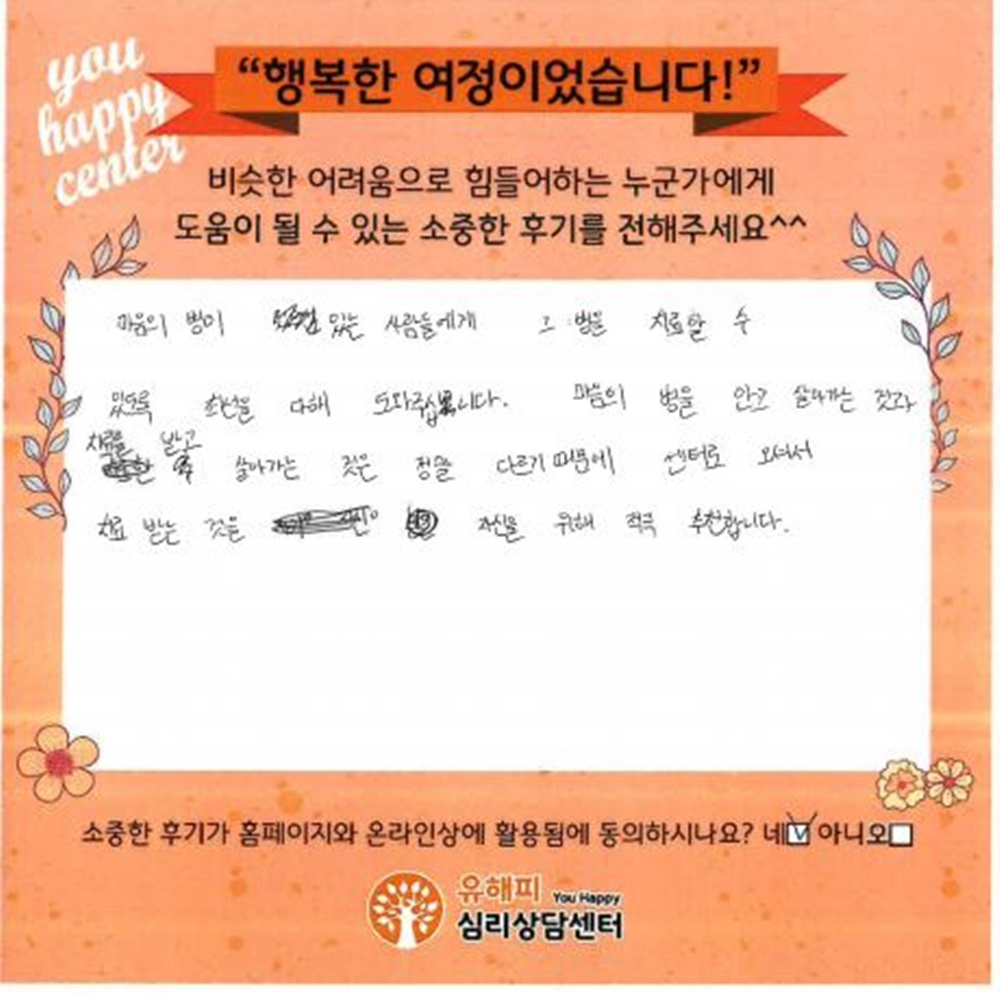 you
happy
center
“행복한 여정이었습니다!”
비슷한 어려움으로 힘들어하는 누군가에게
도움이 될 수 있는 소중한 후기를 전해주세요^^
마음의 병이 있는 사람들에게 그 병을 치료할 수
있도록 최선을 다해 도와주십니다. 마음의 병을 안고 살아가는 것과
치료를 받고
살아가는 것은 정말 다르기 때문에 센터로 오셔서
치료 받는 것을 자신을 위해 적극 추천합니다.
소중한 후기가 홈페이지와 온라인상에 활용됨에 동의하시나요? 네☑ 아니오☐
유해피 You Happy
심리상담센터